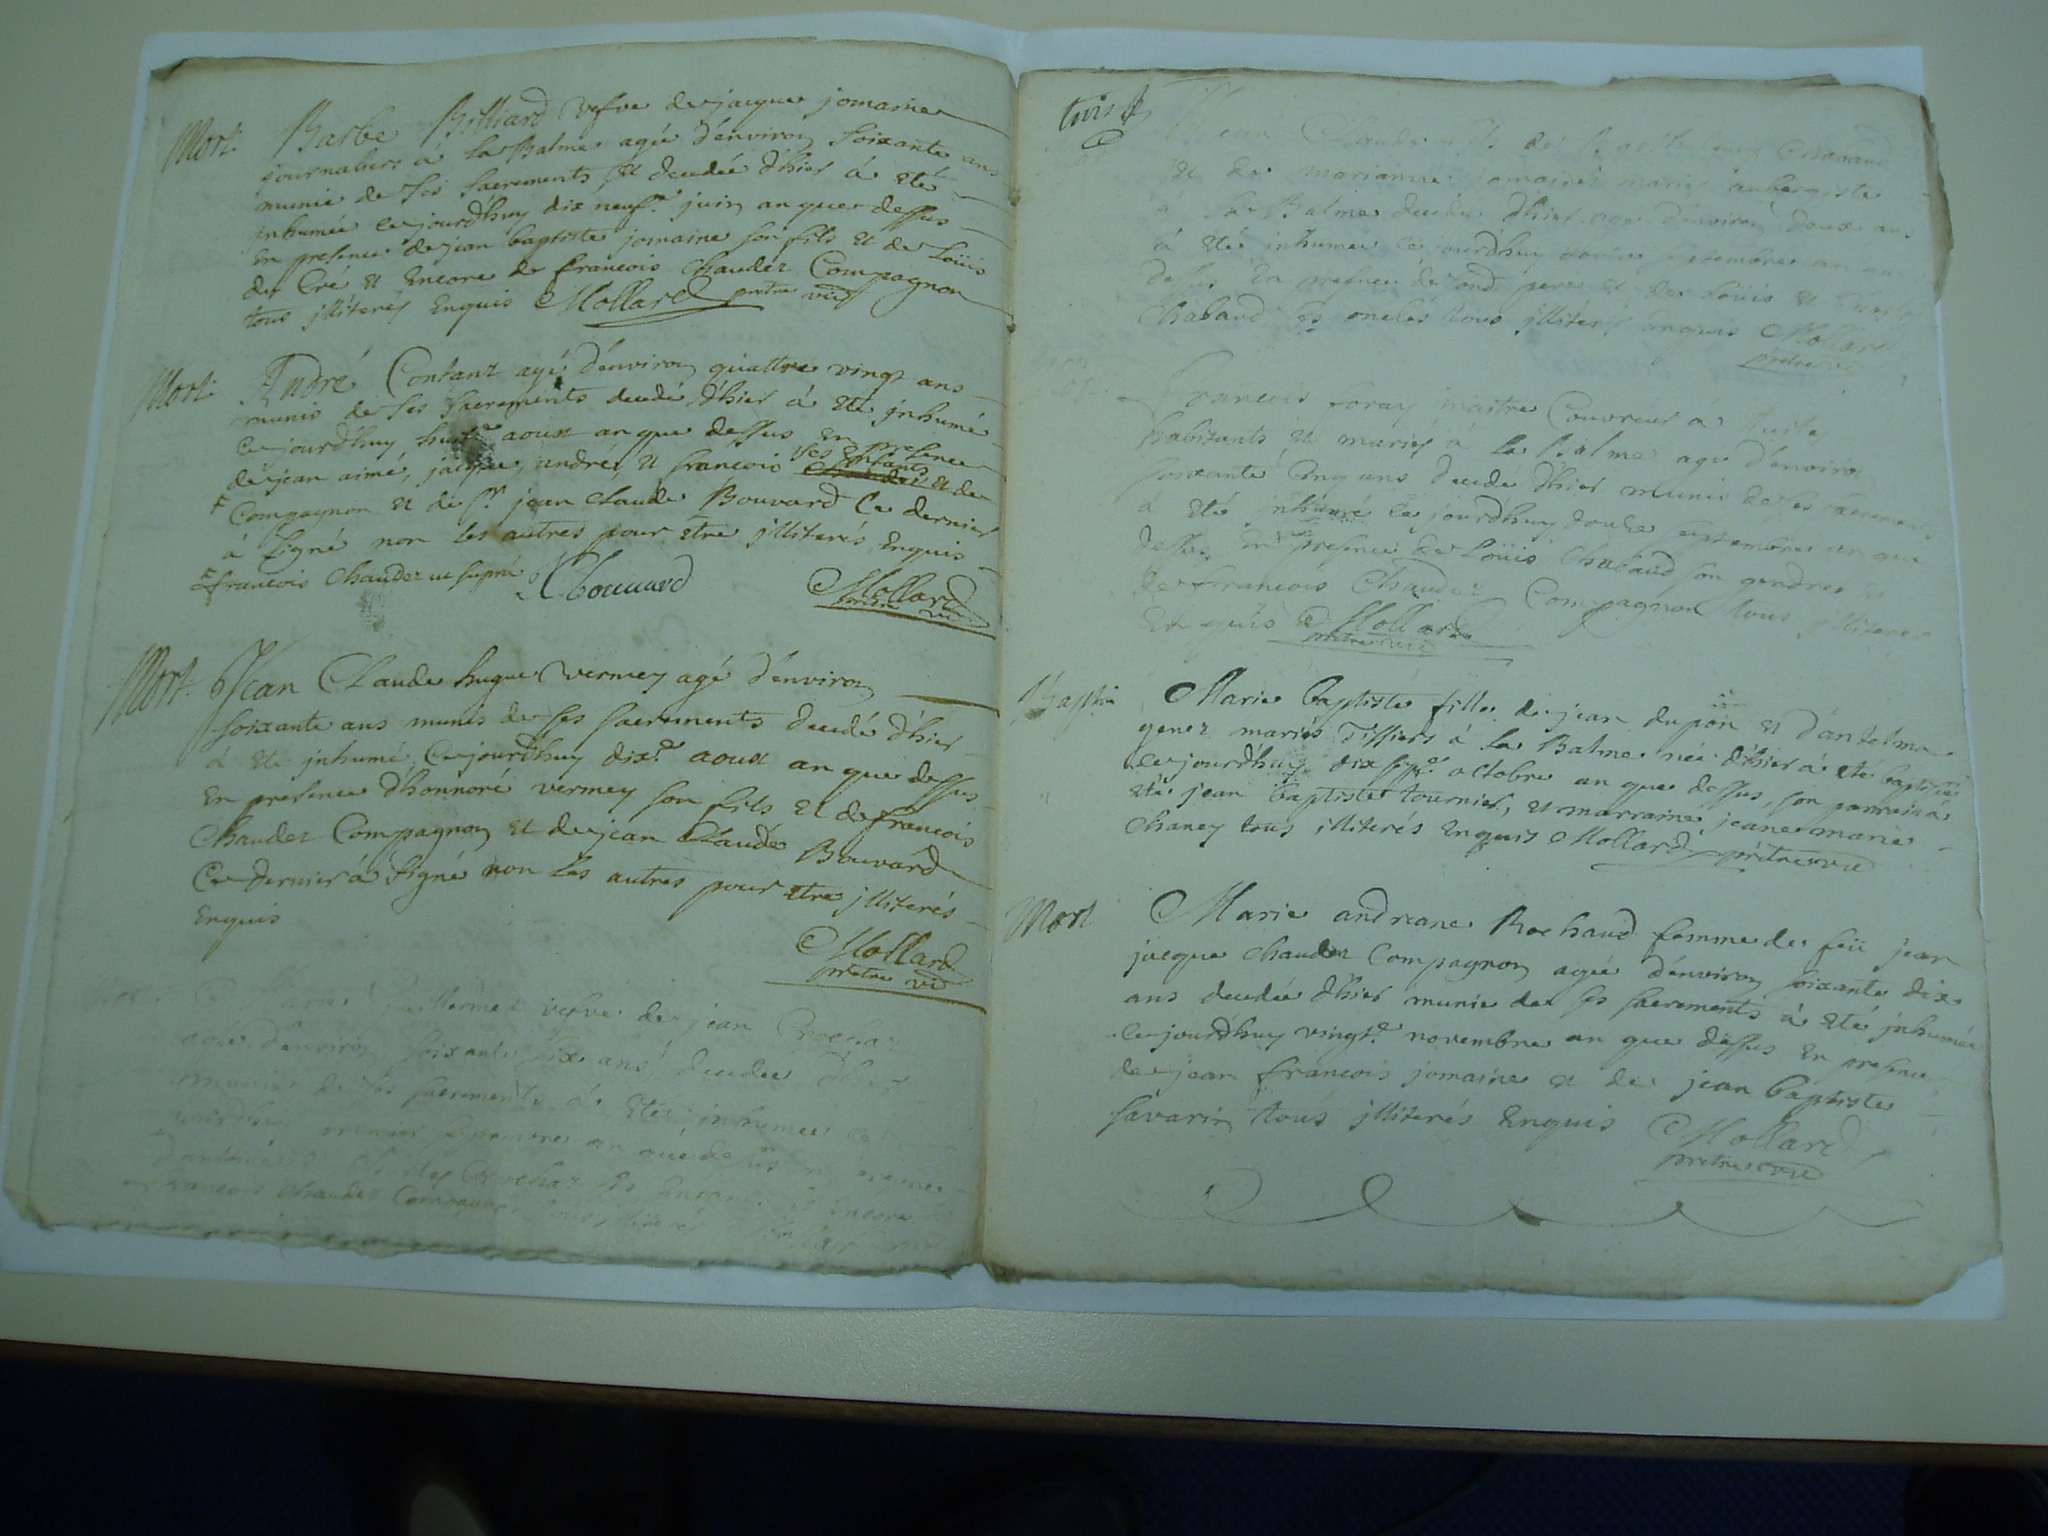 Mort. Barbe Billiard vefve de jacque jomaine
journaliers à la Balme agée d'environ soixante ans
munie de ses sacrements et decedée d'hier à eté
inhumée ce jourd'huy dix neuf.e juin an que dessus
en presence de jean baptiste jomaine son fils et de Loüis
du Cré et encore de francois Chaudet Compagnon
tous illiterés enquis Mollard pretre vic
Mort. André Contant agé d'environ quattre vingt ans
munis de ses sacrements decedé d'hier à eté inhumé
ce jourd'huy huit.e aoust an que dessus en presence
de jean aimé, jacque, andré, et francois ses enfants et de
Compagnon et de sr. jean claude Bouvard Ce dernier
à signé non les autres pour etre illiterés enquis
francois Chaudet ut supra Bouuard Mollard
pretre vic
Mort. Jean Claude hugue Vermey agé d'environ
soixante ans munis de ses sacrements decedé d'hier
à eté inhumé Ce jourd'huy dix.e aoust an que dessus
en presence d'honnoré vermey son fils et de francois
Chaudet Compagnon et de jean Claude Bouvard
Ce dernier à signé non les autres pour etre illiterés
enquis
Mollard
pretre vic
Mort. vefve de jean Brochat
agée d'environ soixante dix ans decedée d'hier
munie de ses sacrements à eté inhumée ce
jourd'huy premier septembre an que dessus en presence
ses enfants et encore de
francois Chaudet Compagnon tous illiterés Mollard
Jean Claude fils de Chabaud
et de marianne jomaine mariés aubergiste
à la Balme decedé d'hier agé d'environ deux ans
à eté inhumé ce jourd'huy septembre an que
dessus en presence de pere et de Loüis et
Chabaud ses oncles tous illiterés enquis Mollard
pretre vic
Francois foray maitre Couvreur à Tuiles
habitants et mariés à la Balme agé d'environ
soixante Cinq ans decedé d'hier munis de ses sacrements
à eté inhumé ce jourd'huy douze septembre an que
dessus en presence de Loüis Chabaud son gendre et
de francois Chaudet Compagnon tous illiterés
enquis Mollard
pretre vic
Baptê Marie baptiste fille de jean dupoin et d'antelma
genet mariés Tissiers à la Balme née d'hier à eté baptisée
ce jourd'huy dix sept.e octobre an que dessus, son parrain à
eté jean baptiste tournier, et marraine jeane marie
Chaney tous illiterés enquis Mollard pretre vic
Mort Marie andreane Rochaud femme de feü jean
jacque chaudet Compagnon agée d'environ soixante dix
ans decedée d'hier munie de ses sacrements à eté inhumée
ce jourd'huy vingt.e novembre an que dessus en presence
de jean francois jomaine et de jean baptiste
savarin tous illiterés enquis Mollard
pretre vic